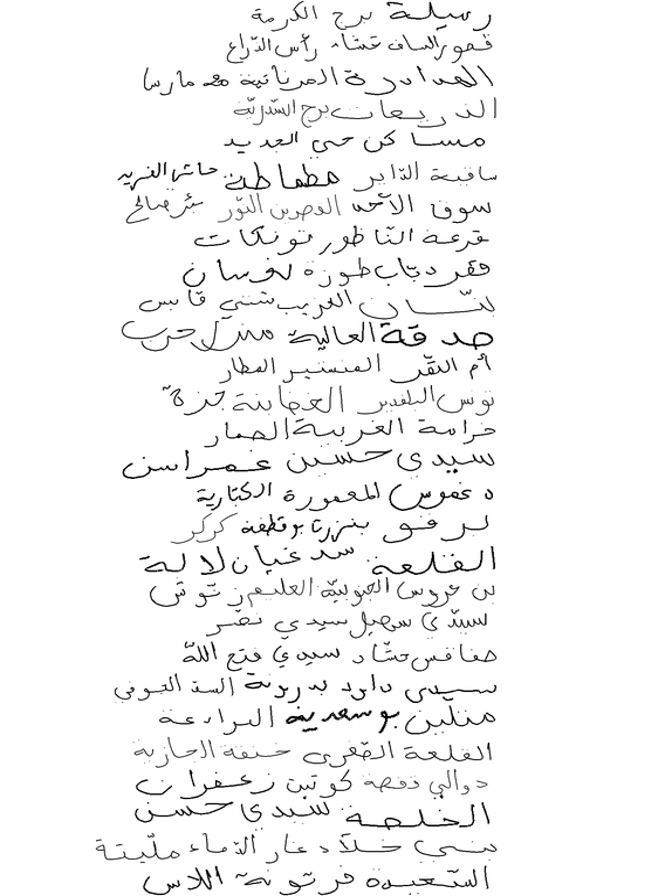 رسيلة برج الكرمة
قصور الساف عشاء رأس الذراع
الهدادرة المرناقية 20 مارس
الذريعات برج السدرية
مساكن حي الجديد
ساقية الداير مطماطة حاشي الفريد
سوق الأحد الدصرين النور بئر صالح
قرعة الناظور تونكات
فقر دباب طورة نفسان
لسان العريب شنني قابس
صدقة العالية منزل حرب
أم النقر المنستير العطار
تونس البلفدير الغضابنة جزة
خزامة الغربية الصمار
سيدي حسين غمراسن
دغفوس المعمورة الكبارية
لرفو بنزرت بوقطفة كركر
القلعة سد غيان لالة
بن عروس الجنوبية العليم زتوش
سيدي سهيل سيدي نصر
صفاقس حشاد سيدي فتح الله
سيدي داود بدرونة السد الجوفي
متلين بوسعدية البرادعة
القلعة الصغرى خنقة الجازية
دوالي قفصة كوتين زعفران
الخلصة سيدي حسن
بني خلاد غار الدماء مليتة
السعيدة فرتونة اللاس